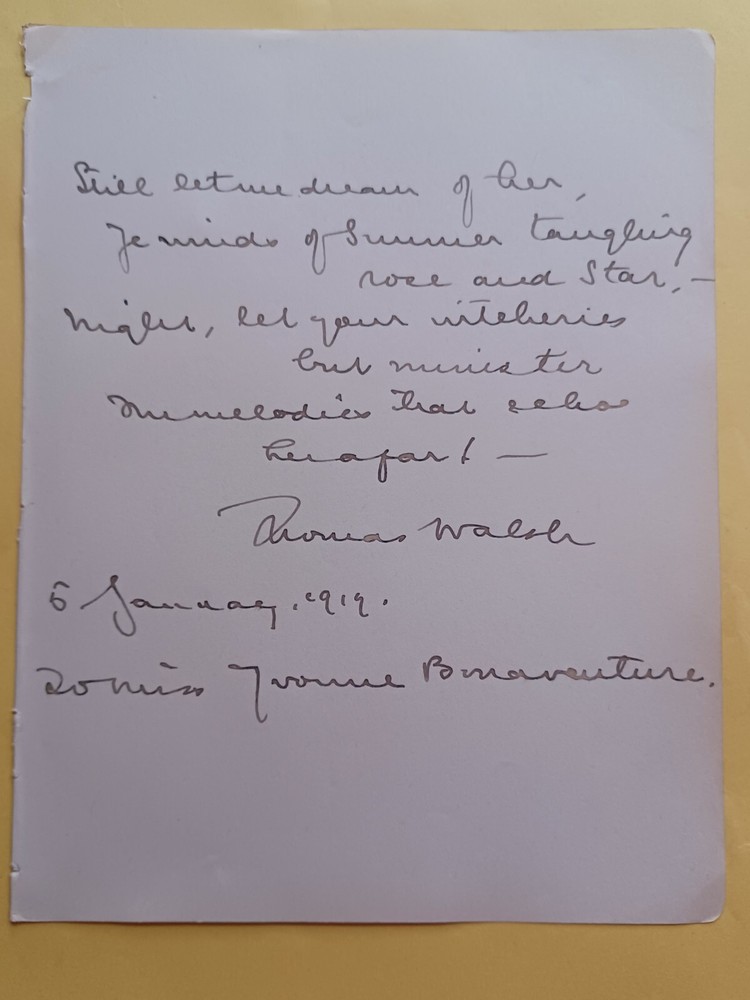 Still let me dream of her,
Ye winds of Summer tangling
rose and Star, —
Night, let your witcheries
but minister
In melodies that echo
her afar! —
Thomas Walsh
5 January. 1919.
To Miss Yvonne Bonaventure.